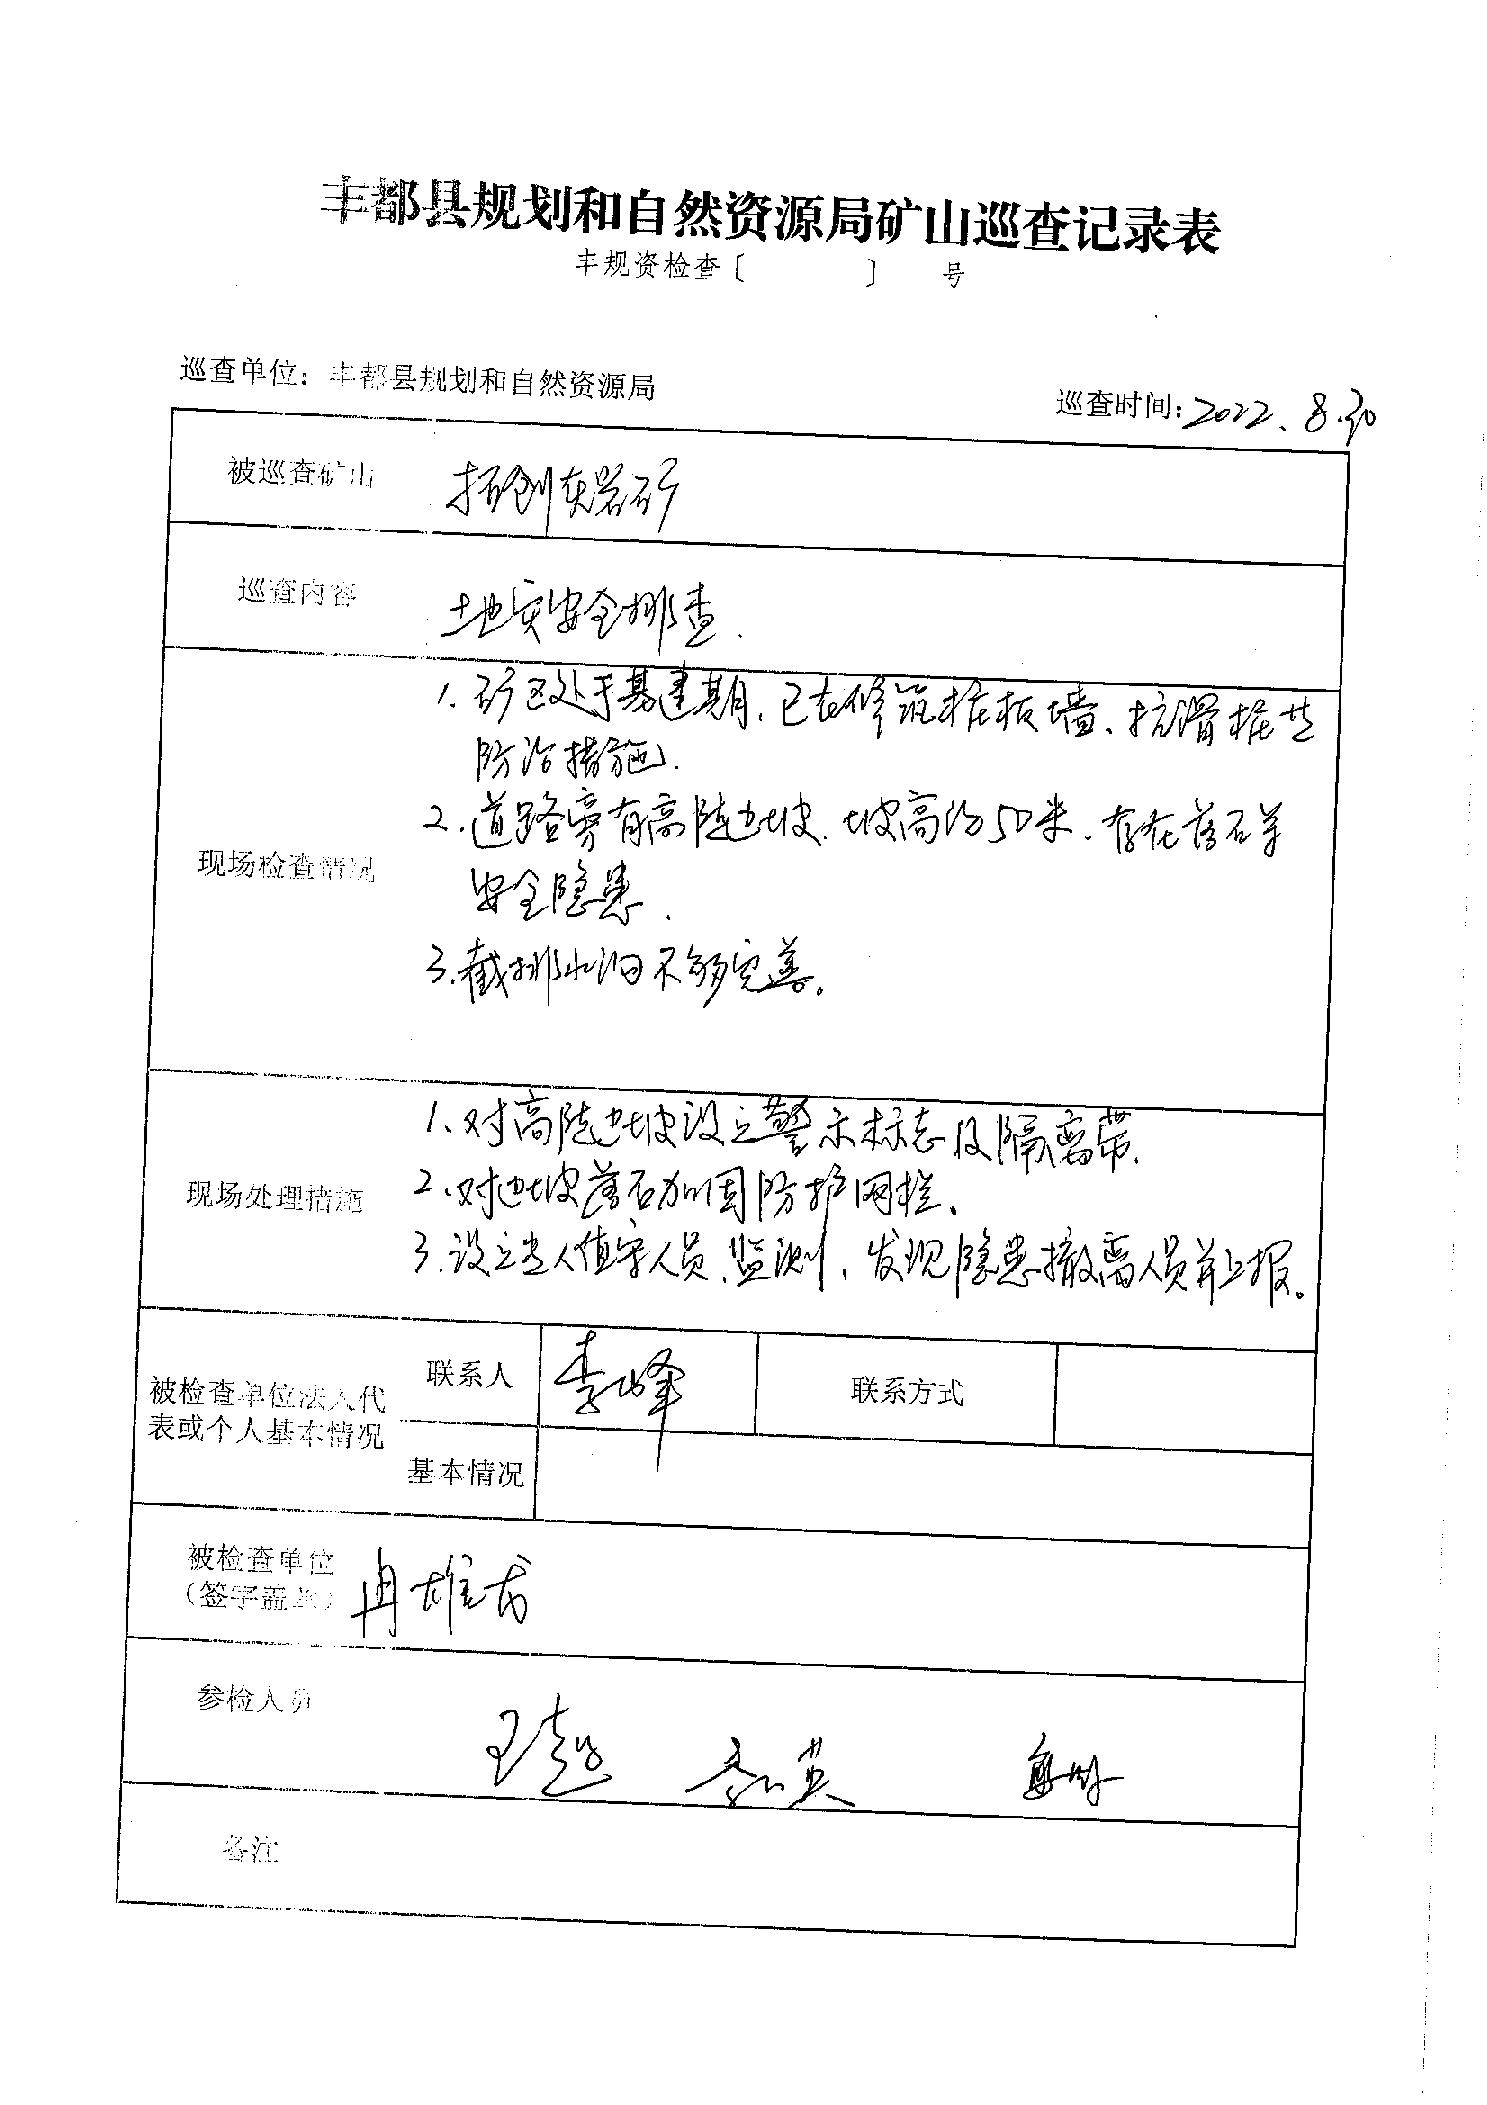 丰都县规划和自然资源局矿山巡查记录表
丰规资检查〔 〕 号
巡查单位：丰都县规划和自然资源局
巡查时间：2022.8.30
被巡查矿山 拓创灰岩矿
巡查内容 地灾安全排查.
1. 矿区处于基建期、已在修筑桩板墙、抗滑桩等
防治措施.
2. 道路旁有高陡边坡、坡高约50米、存在落石等
现场检查情况
安全隐患.
3. 截排水沟不够完善。
1、对高陡边坡设立警示标志及隔离带.
现场处理措施 2、对边坡落石加固防护网栏、
3. 设立专人值守人员、监测、发现隐患撤离人员并上报。
被检查单位法人代
表或个人基本情况
联系人 李峰 联系方式
基本情况
被检查单位
（签字盖章） 冉雄成
参检人员
王超 英
备注